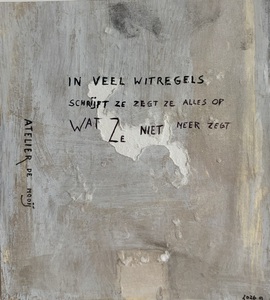 IN VEEL WITREGELS
SCHRIJFT ZE ZEGT ZE ALLES OP
WAT ZE NIET MEER ZEGT
ATELIER DE MOOIJ